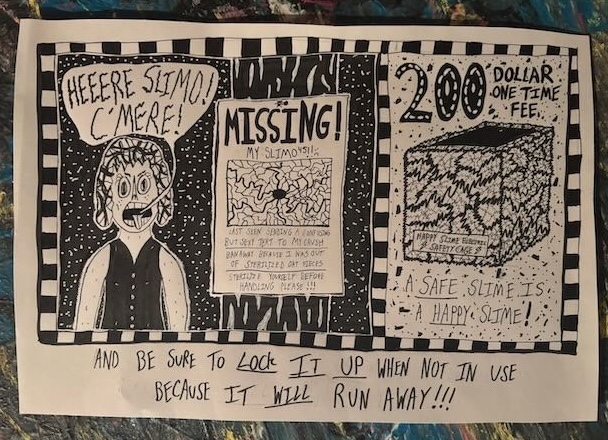 HEEERE SLIMO!
C'MERE!
MISSING!
MY SLIMO'S!!
LAST SEEN SENDING A CONFUSING
BUT SEXY TEXT TO MY CRUSH
RAN AWAY BECAUSE I WAS OUT
OF STERILIZED OAT PIECES
STERILIZE YOURSELF BEFORE
HANDLING PLEASE!!!
200 DOLLAR
ONE TIME
FEE
HAPPY SLIME
SAFETY CAGE
A SAFE SLIME IS
A HAPPY SLIME!
AND BE SURE TO LOCK IT UP WHEN NOT IN USE
BECAUSE IT WILL RUN AWAY!!!